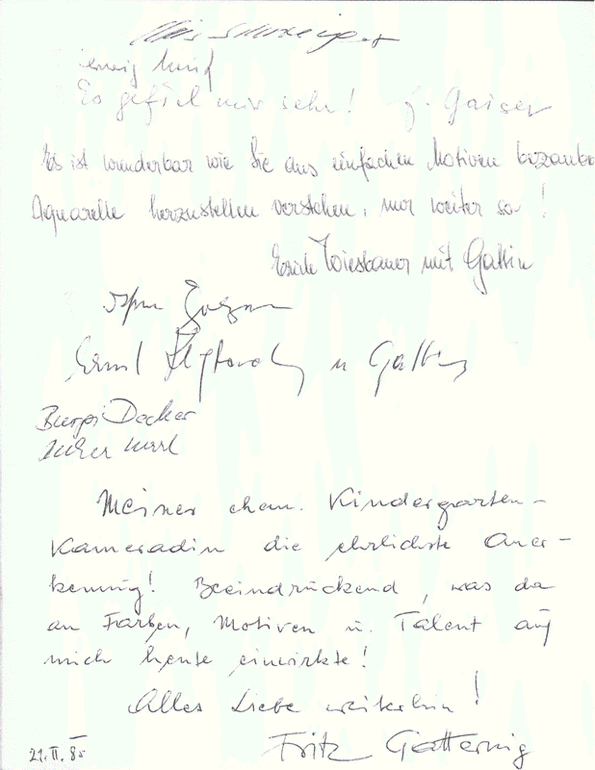 Es gefiel mir sehr! J. Gaiser
Es ist wunderbar wie Sie aus einfachen Motiven bezaube
Aquarelle herzustellen verstehen, nur weiter so!
Erich Wiesbauer mit Gattin
Ernst u Gattin
Burgi Decker
Karl
Meiner ehem. Kindergarten-
Kameradin die ehrlichste Aner-
kennung! Beeindruckend, was da
an Farben, Motiven u. Talent auf
mich heute einwirkte!
Alles Liebe weiterhin!
21.II.85 Fritz Gatternig